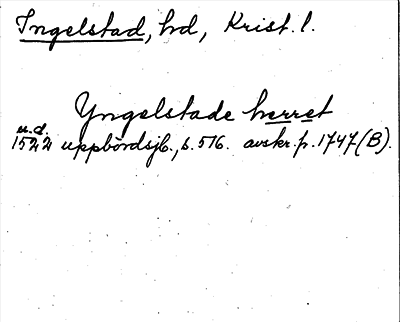 Ingelstad, hd, Krist. l.
Yngelstade herret
u.d.
1522 uppbördsjb., s. 516. avskr. fr. 1747 (B).